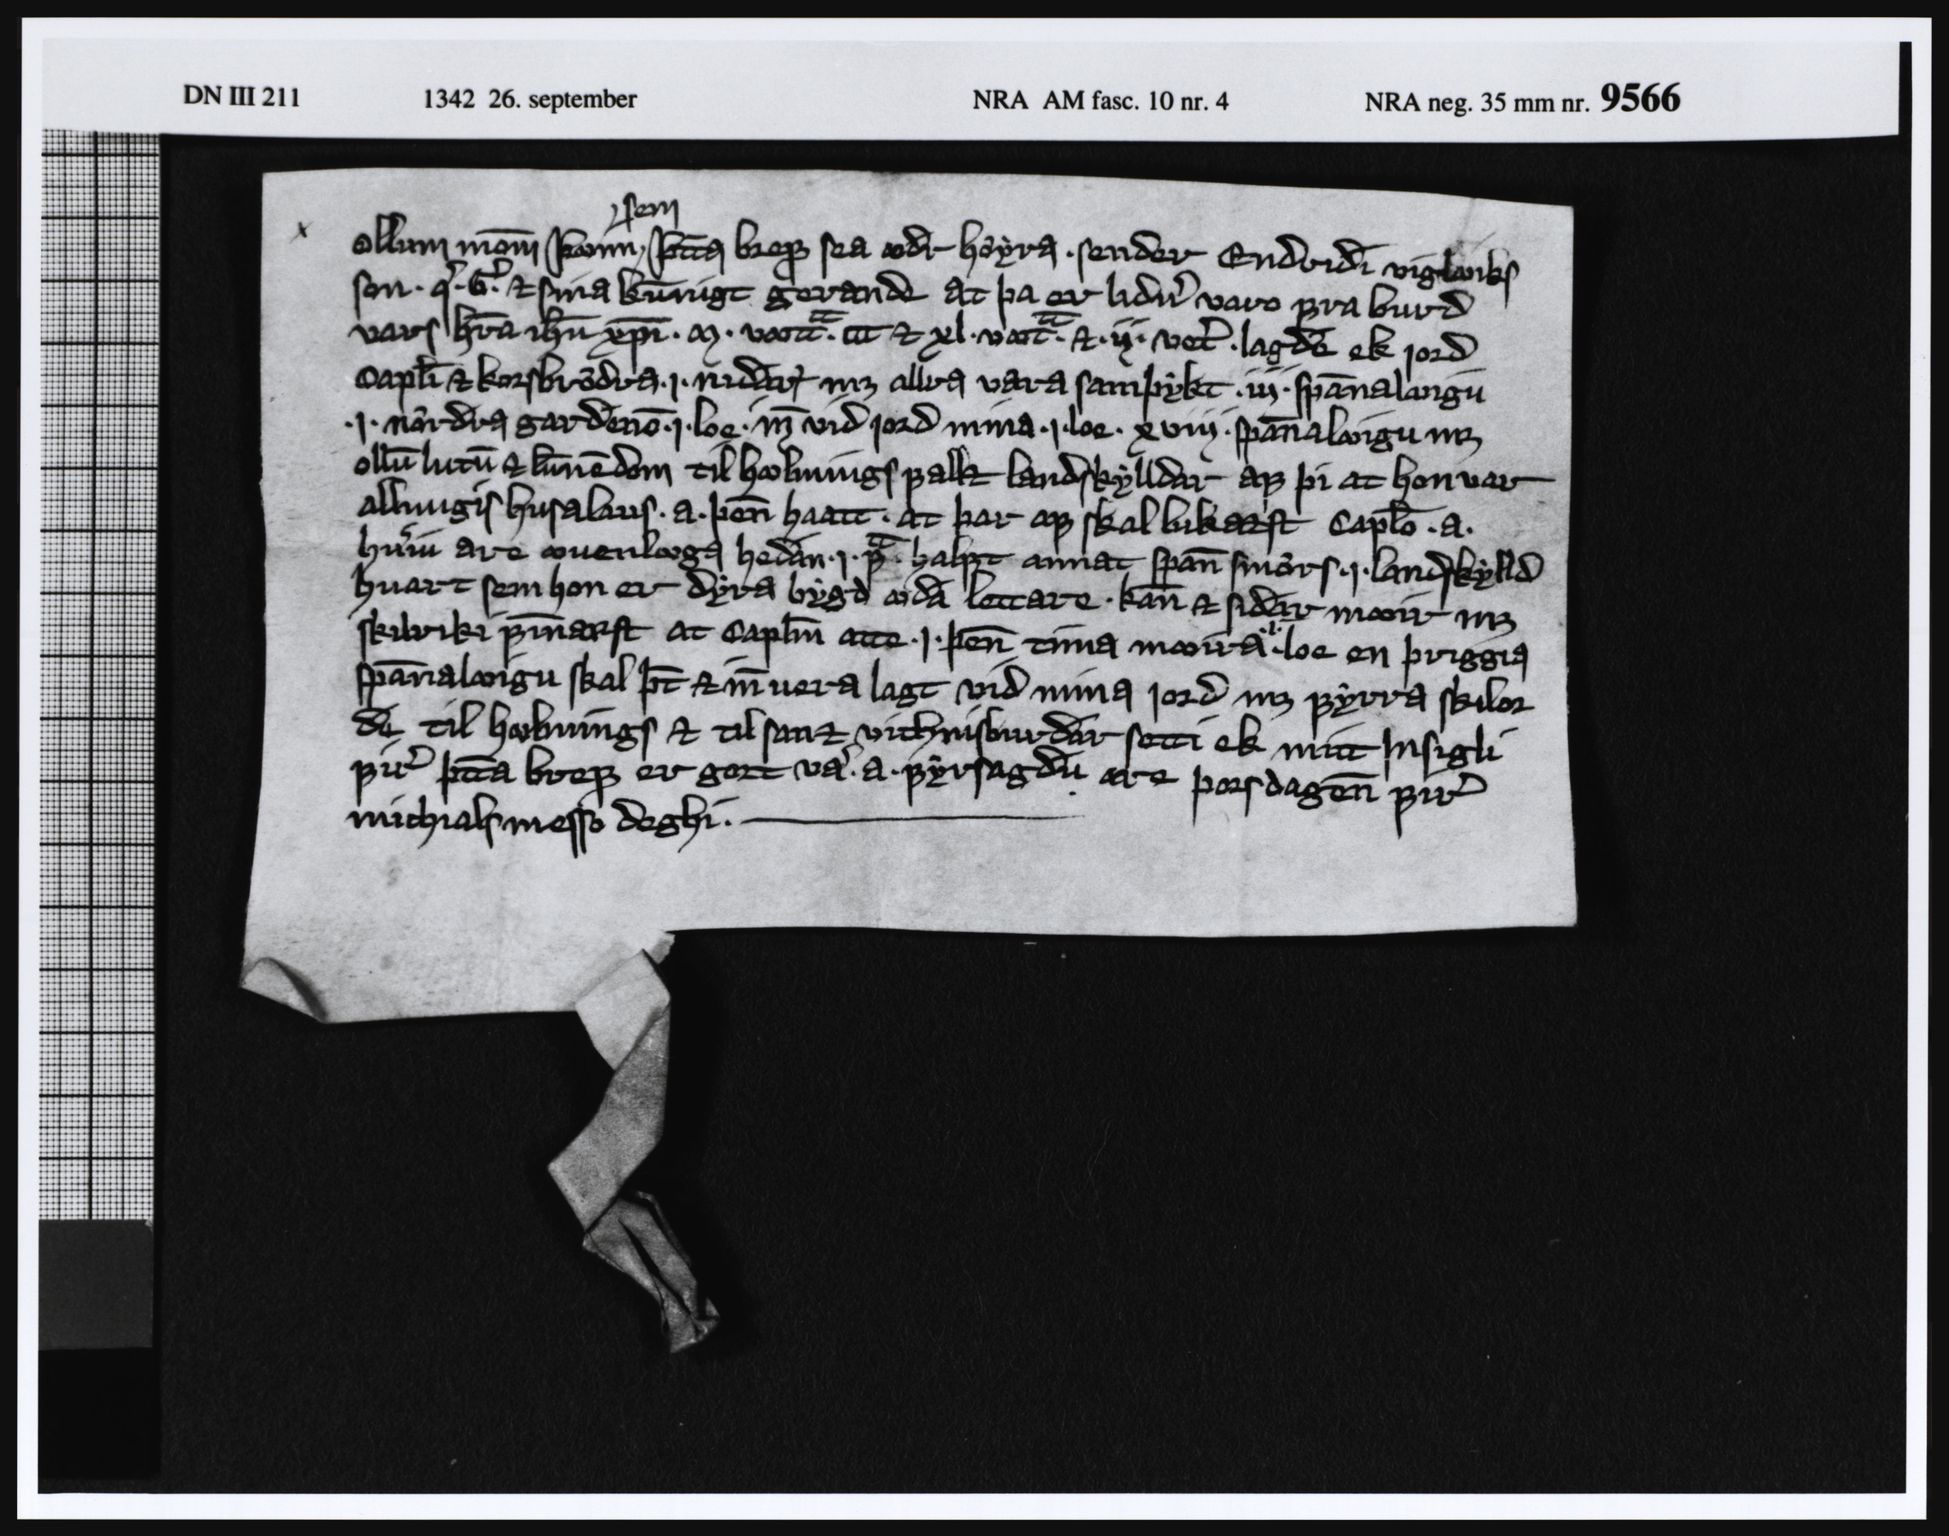 DN III 211 1342 26. september NRA AM fasc. 10 nr. 4 NRA neg. 35 mm nr. 9566
sem
x ollum mōm þæim þtta bref sea ædr høyra · sender Endridi viglæiks
son · q · G · ⁊ sina kunnigt gerande at þa er lidnir varo fra burd
vars hr̄a ih̄u xp̄i · m · vætt̄ · ccc ⁊ xl · vætt̄ · ⁊ · ij · vet̄r · lagde ek iord
Capl̄i ⁊ korsbrødra · j · nidar mꝫ allra vara samþykt · iij · span̄alæigu
· j · nørdra gardenō · j · loe · in̄ vid iord mina · j · loe · xviij · span̄alæigu mꝫ
ollū lutū ⁊ lun̄endom til hælmings falz landskylldar af þi at hon var
allungis husalaus · a · þen̄ haatt · at þar af skal lukaazst Caplō · a ·
huriu are æuenlæga hedan · j · fra · halft annat span̄ smørs · j · landskylld
huart sem hon er dyra bygd æda lettare · kan̄ ⁊ sidar mæir mꝫ
skilriki fin̄aazst at Caplm̄ atte · j · þen̄ tima mæira · j · loe en þriggia
span̄alæigu skal þt̄ ⁊ in̄ vera lagt vid mina iord mꝫ fyrra skilor
de til hælmings ⁊ til sanz vithnisburdar setti ek mitt Insigli
fir̄ þtta bref er gort va · a · fyrsagdu are þorsdagen̄ fir̄
michials messo deghi.